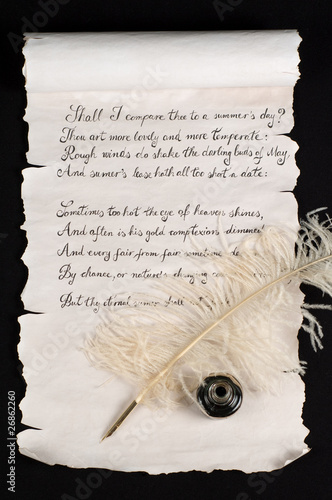 Shall I compare thee to a summer's day?
Thou art more lovely and more temperate:
Rough winds do shake the darling buds of May,
And sumer's lease hath all too short a date:
Sometimes too hot the eye of heaven shines,
And often is his gold complexions dimmed
And every fair from fair sometime
By chance, or nature's changing
But the eternal sumer shall not
26862260